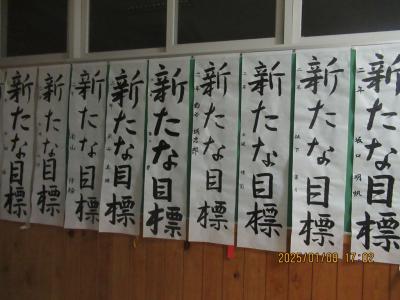 新たな目標
新たな目標
新たな目標
新たな目標
新たな目標
新たな目標
新たな目標
新たな目標
新たな目標
二年 坂口 明帆
2025/01/09 17:02